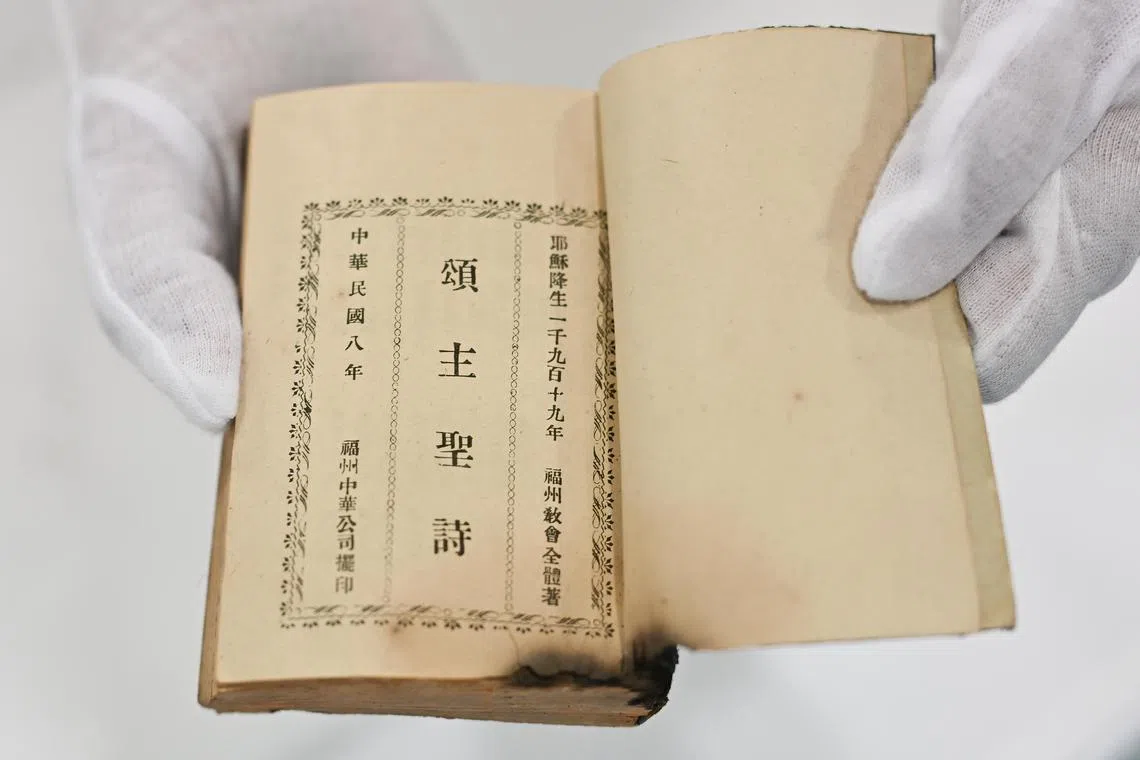 耶穌降生一千九百十九年 福州敎會全體著
頌主聖詩
中華民國八年 福州中華公司擺印